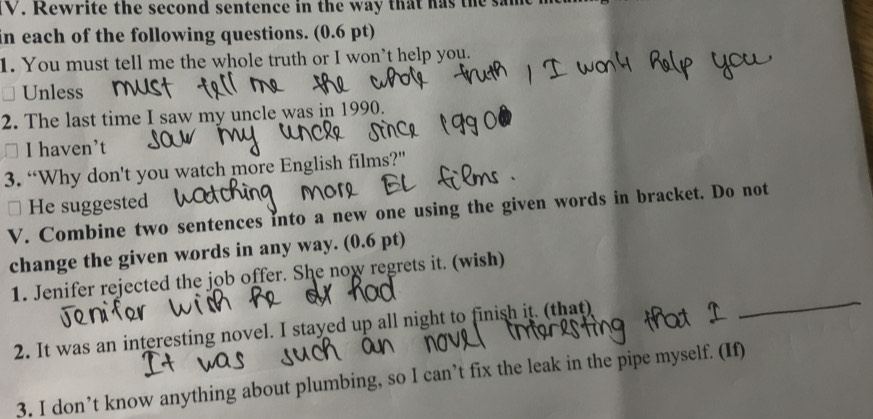 IV. Rewrite the second sentence in the way that has the same
in each of the following questions. (0.6 pt)
1. You must tell me the whole truth or I won't help you.
□ Unless must tell me the whole truth, I won't help you
2. The last time I saw my uncle was in 1990.
□ I haven't saw my uncle since 1990
3. “Why don't you watch more English films?"
□ He suggested watching more EL films.
V. Combine two sentences into a new one using the given words in bracket. Do not
change the given words in any way. (0.6 pt)
1. Jenifer rejected the job offer. She now regrets it. (wish)
Jenifer wish he had
2. It was an interesting novel. I stayed up all night to finish it. (that)
It was such an novel interesting that I
3. I don't know anything about plumbing, so I can't fix the leak in the pipe myself. (If)